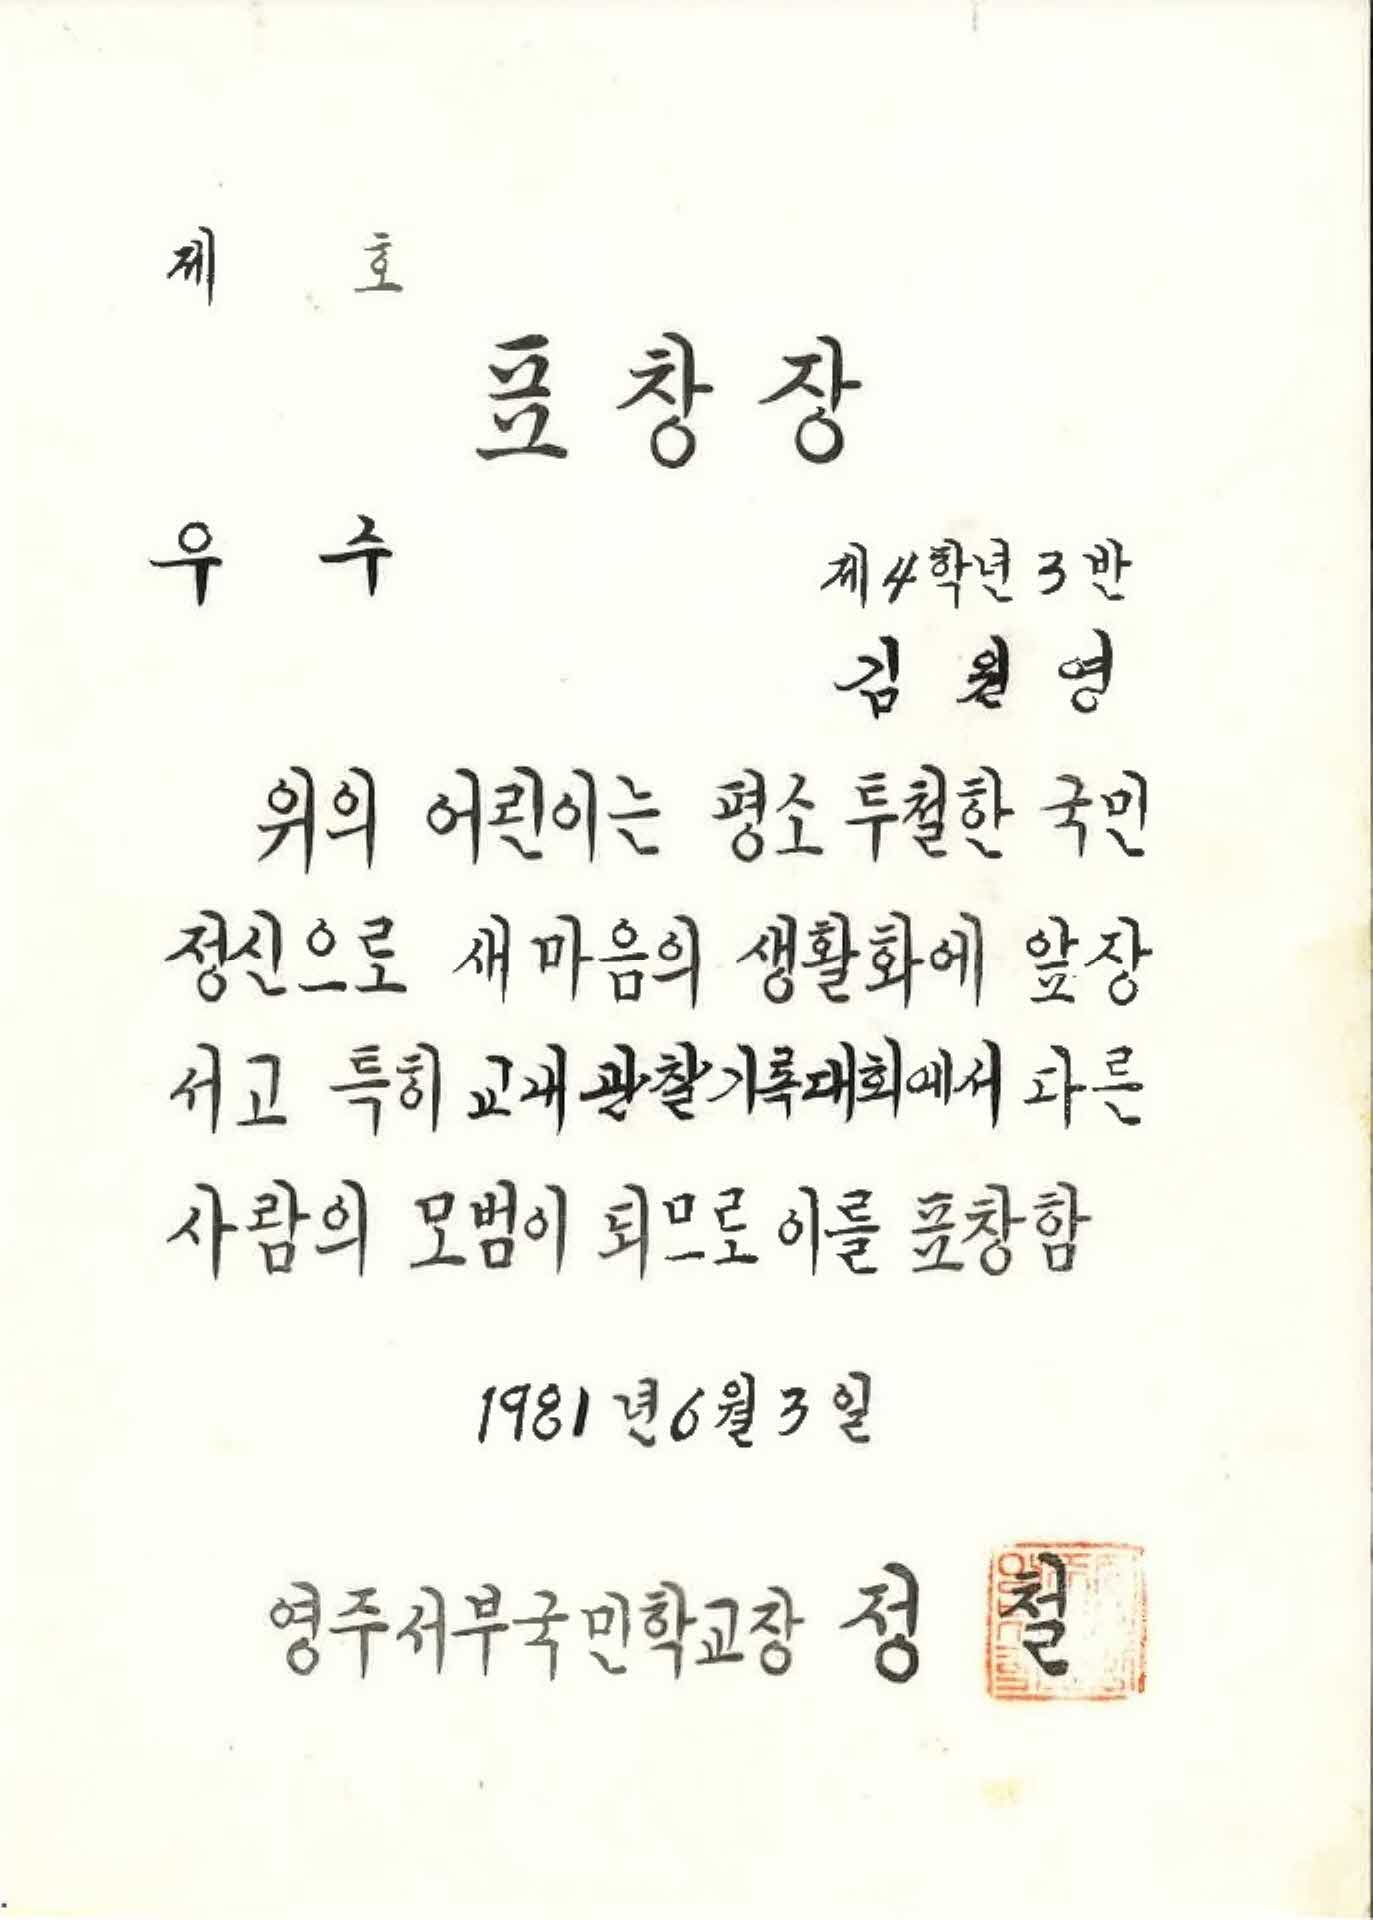 제 호
표창장
우 수
제4학년 3반
김 원 영
위의 어린이는 평소 투철한 국민
정신으로 새마음의 생활화에 앞장
서고 특히 교내 관찰기록대회에서 다른
사람의 모범이 되므로 이를 표창함
1981년 6월 3일
영주서부국민학교장 정 철